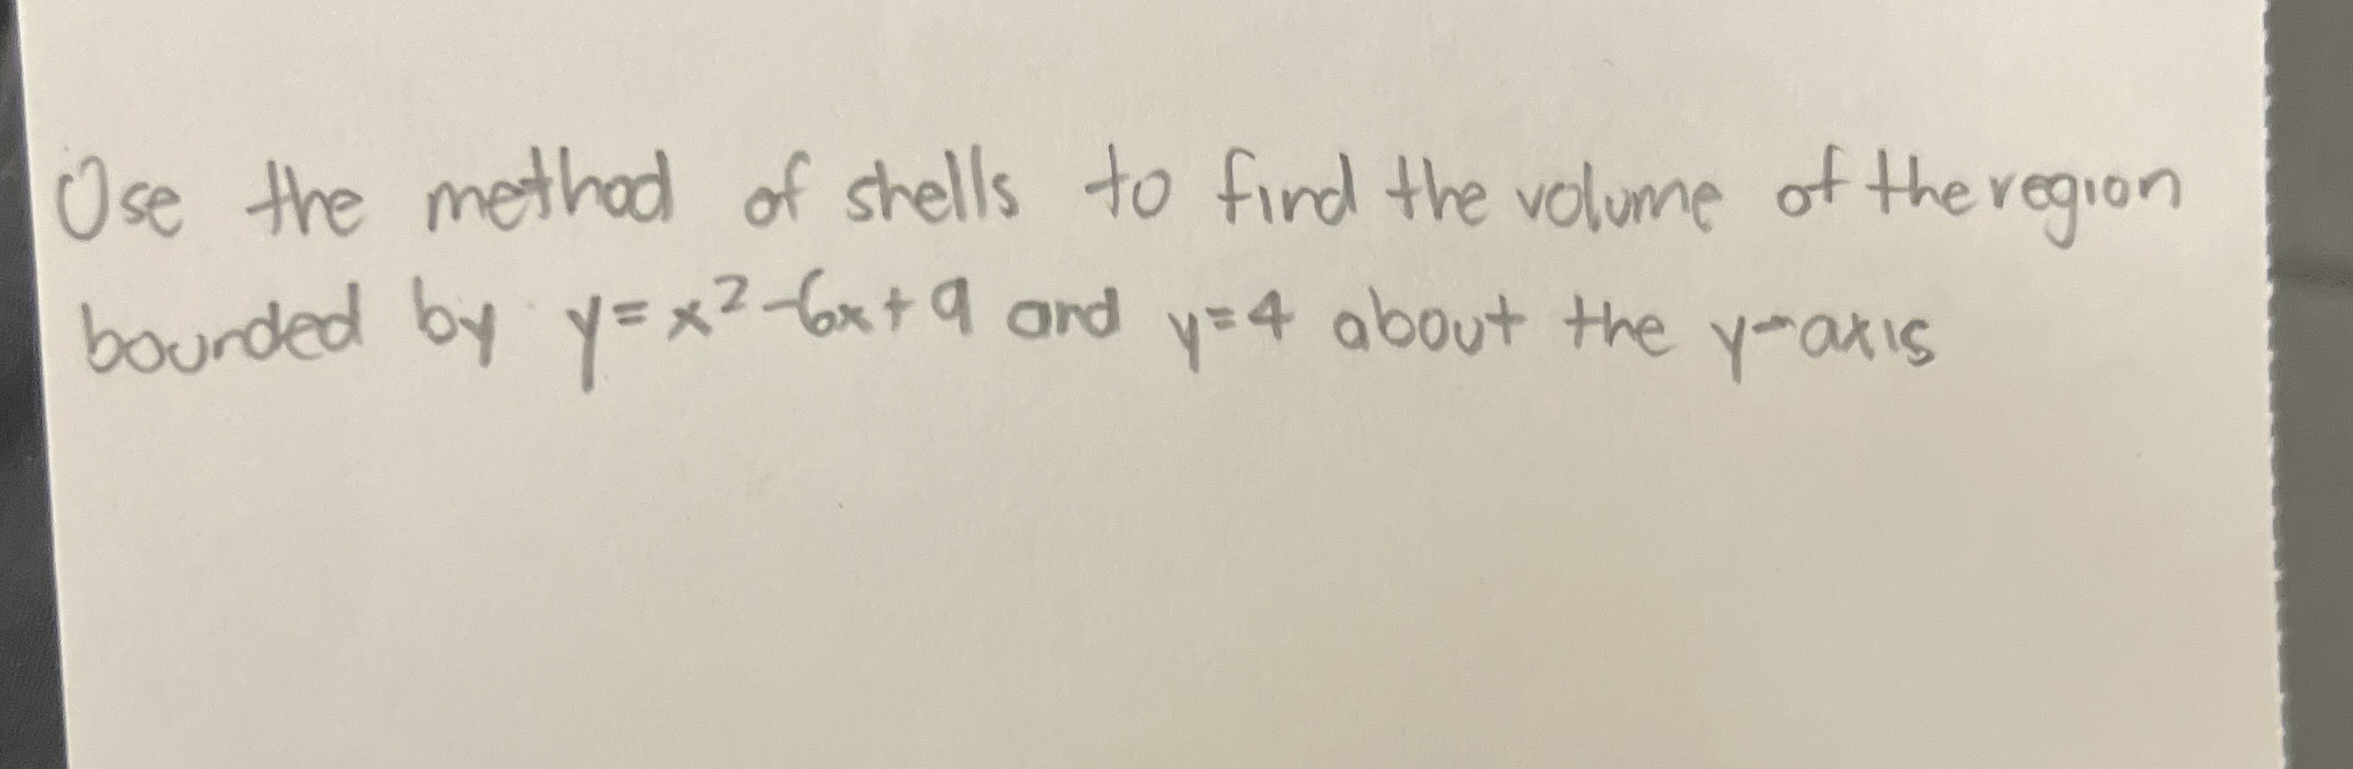 Use the method of shells to find the volume of the region
bounded by y=x²-6x+9 and y=4 about the y-axis